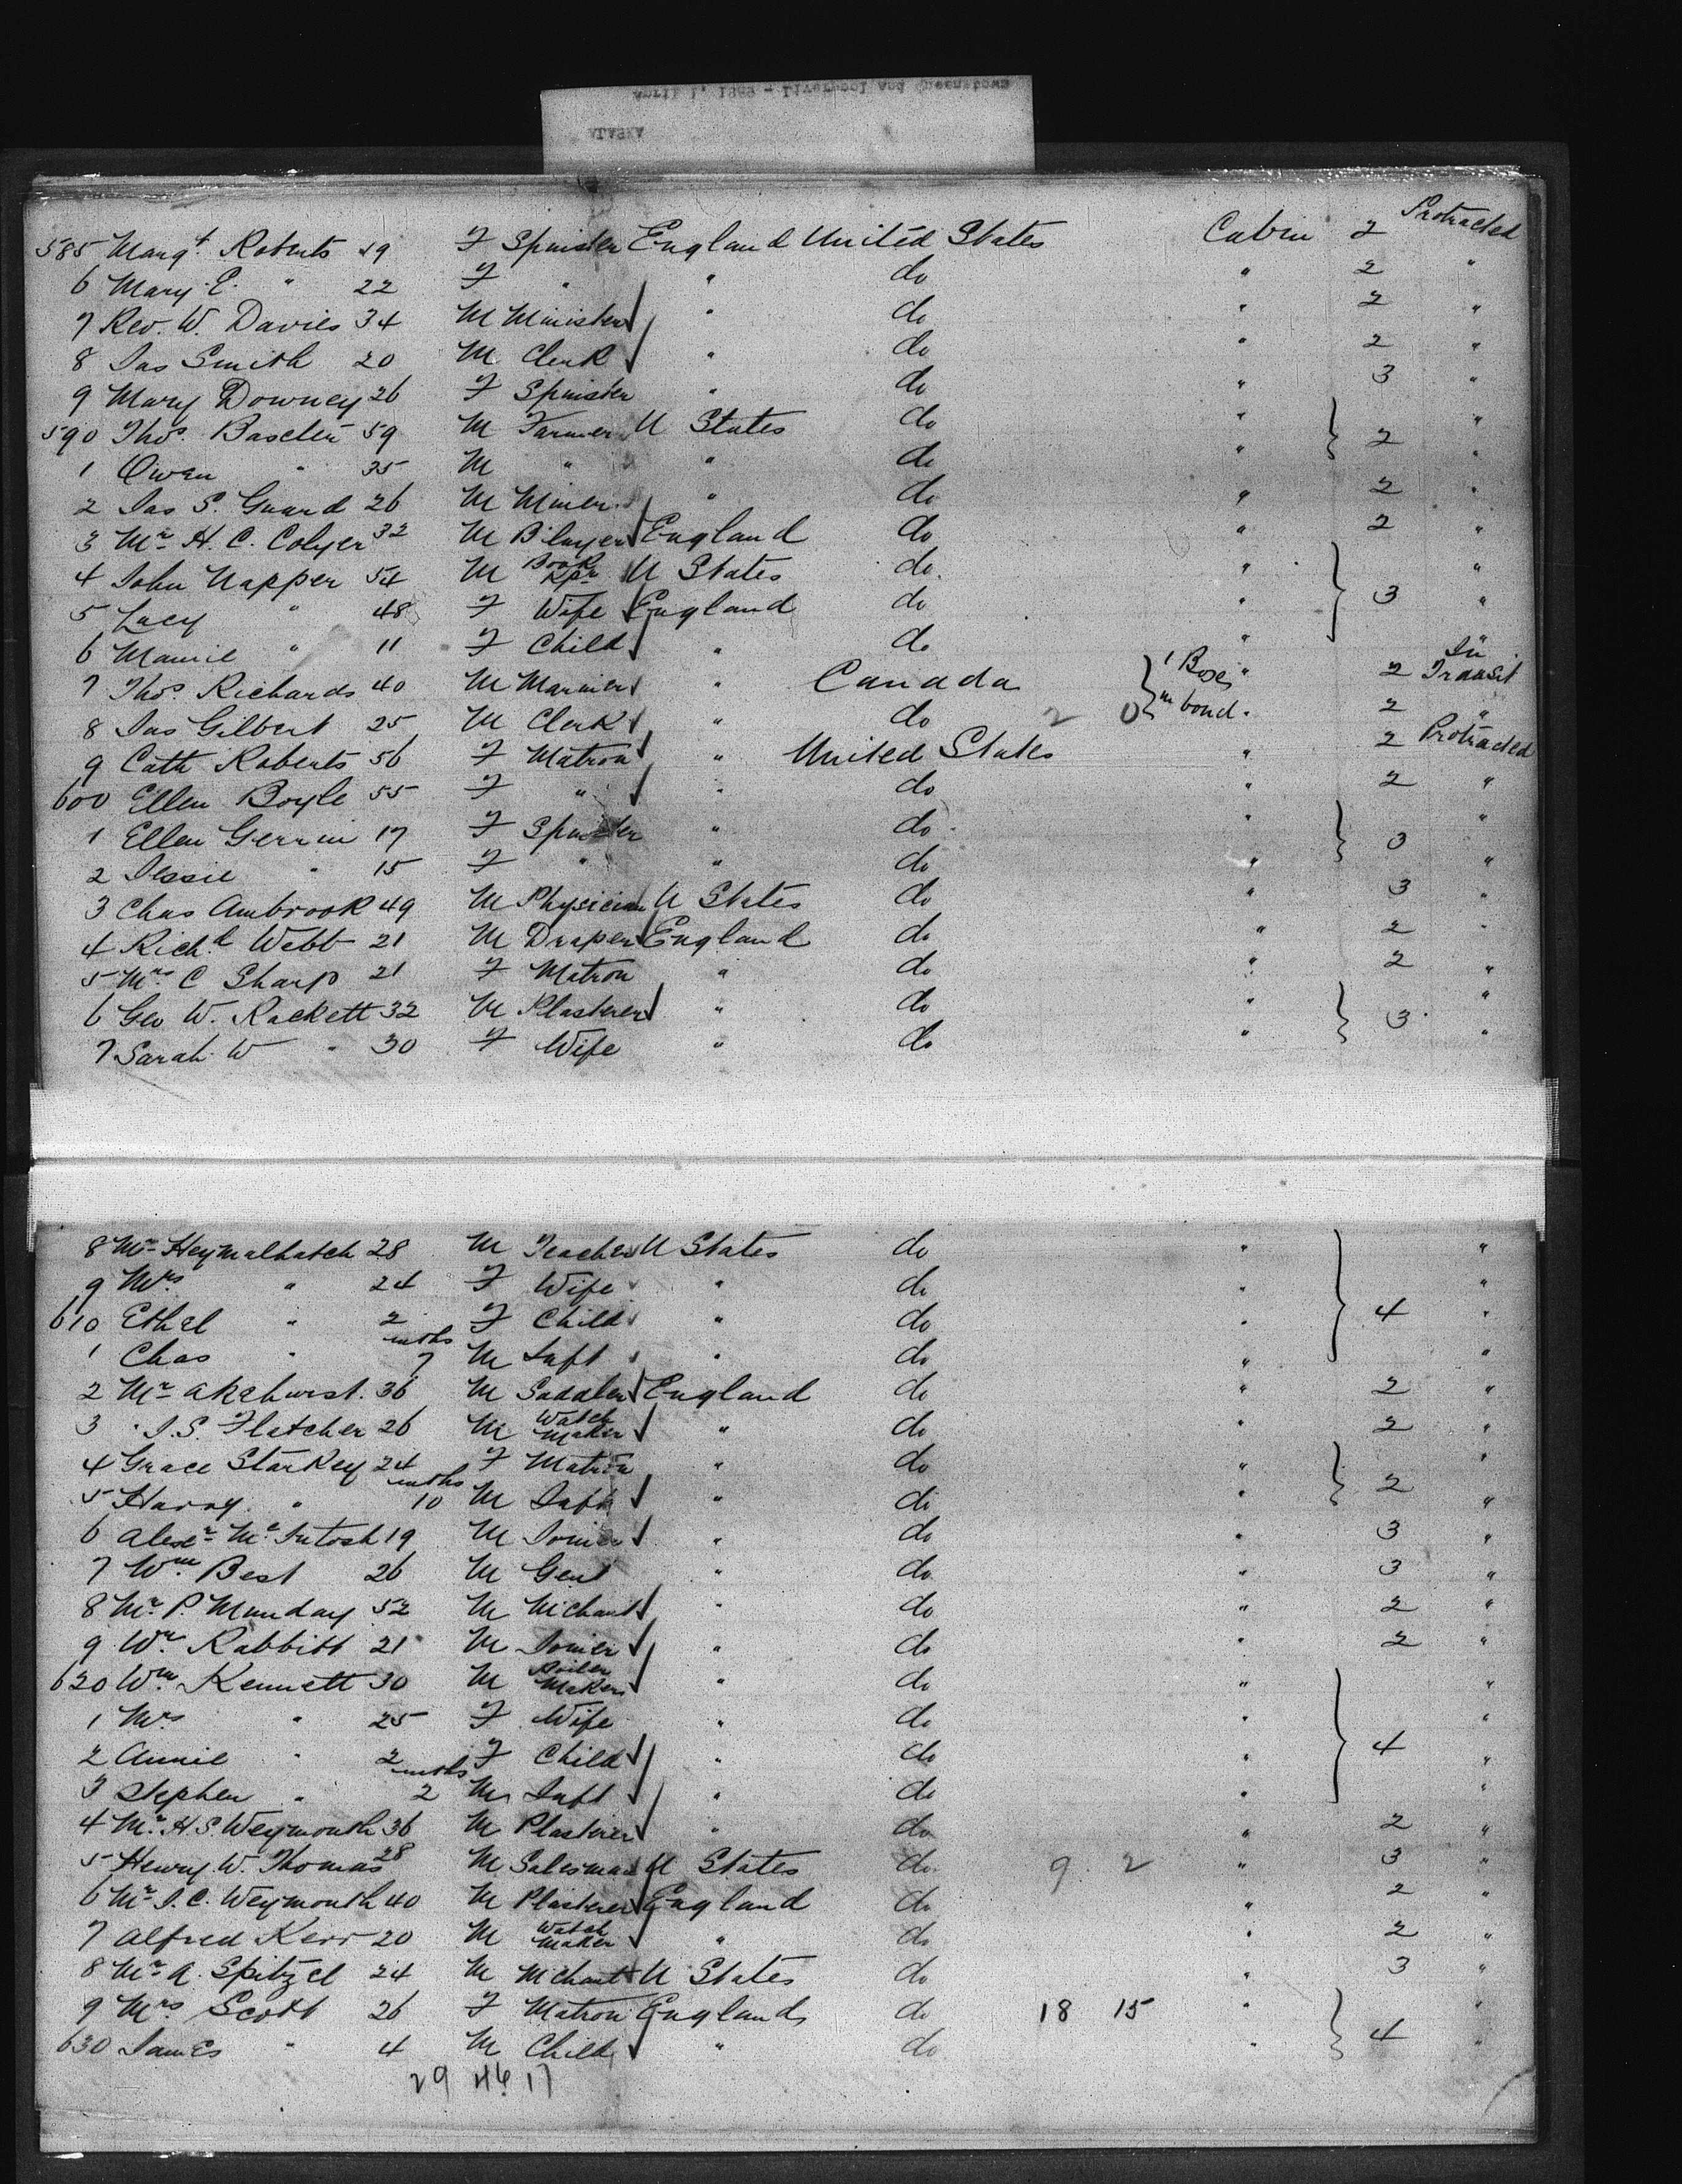 April 1, 1889 - Liverpool and Queenstown
585 Margt Roberts 19 F Spinster England United States Cabin 2 Protracted
6 Mary E. " 22 F " " do " 2 "
7 Rev. W. Davies 34 M Minister " do " 2 "
8 Jas Smith 20 M Clerk " do " 2 "
9 Mary Downey 26 F Spinster " do " 3 "
590 Thos. 59 M Farmer U States do " 2 "
1 Owen " 35 M " " do " "
2 Jas S. Guard 26 M Miner " do " 2 "
3 Mr H. C. Colyer 32 M England do " 2 "
4 John Napper 54 M Book Kpr U States do. " 3 "
5 Lucy " 48 F Wife England do " "
6 Mamie " 11 F Child " do "
7 Thos Richards 40 M Mariner " Canada 1 Box " 2 In Transit
8 Jas Gilbert 25 M Clerk " do 2 0 in bond " 2 "
9 Cath Roberts 56 F Matron " United States " 2 Protracted
600 Ellen Boyle 55 F " " do " 2 "
1 Ellen Gerrin 17 F Spinster " do " 3 "
2 Jessie " 15 F " " do " "
3 Chas Ambrook 49 M Physician U States do " 3 "
4 Richd Webb 21 M Draper England do " 2 "
5 Mrs C Sharp 21 F Matron " do " 2 "
6 Geo W. Rackett 32 M Plasterer " do " 3 "
7 Sarah W " 30 F Wife " do " "
8 Mr Heymalhatch 28 M Teacher U States do " 4 "
9 Mrs " 24 F Wife " do " "
610 Ethel " 2 F Child " do " "
1 Chas " mths 7 M Inft " do " "
2 Mr Akehurst. 36 M Saddler England do " 2 "
3 " J. S. Fletcher 26 M Watch Maker " do " 2 "
4 Grace Starkey 24 F Matron " do " 2 "
5 Harry " mths 10 M Inft " do " "
6 Alexr McIntosh 19 M Joiner " do " 3 "
7 Wm Best 26 M Gent " do " 3 "
8 Mr P. Munday 52 M Mchant " do " 2 "
9 Wm Rabbitt 21 M Joiner " do " 2 "
620 Wm Kennett 30 M Boiler Maker " do " 4 "
1 Mrs " 25 F Wife " do " "
2 Annie " 2 F Child " do " "
3 Stephen " mths 2 M Inft " do " "
4 Mr H. S. Weymouth 36 M Plasterer " do " 2 "
5 Henry W. Thomas 28 M Salesman U States do 9 2 " 3 "
6 Mr J. C. Weymouth 40 M Plasterer England do " 2 "
7 Alfred Kerr 20 M Watch Maker " do " 2 "
8 Mr A. Spitzel 24 M Mchant U States do " 3 "
9 Mrs Scott 26 F Matron England do 18 15 " 4 "
630 James " 4 M Child " do " "
29 46 17